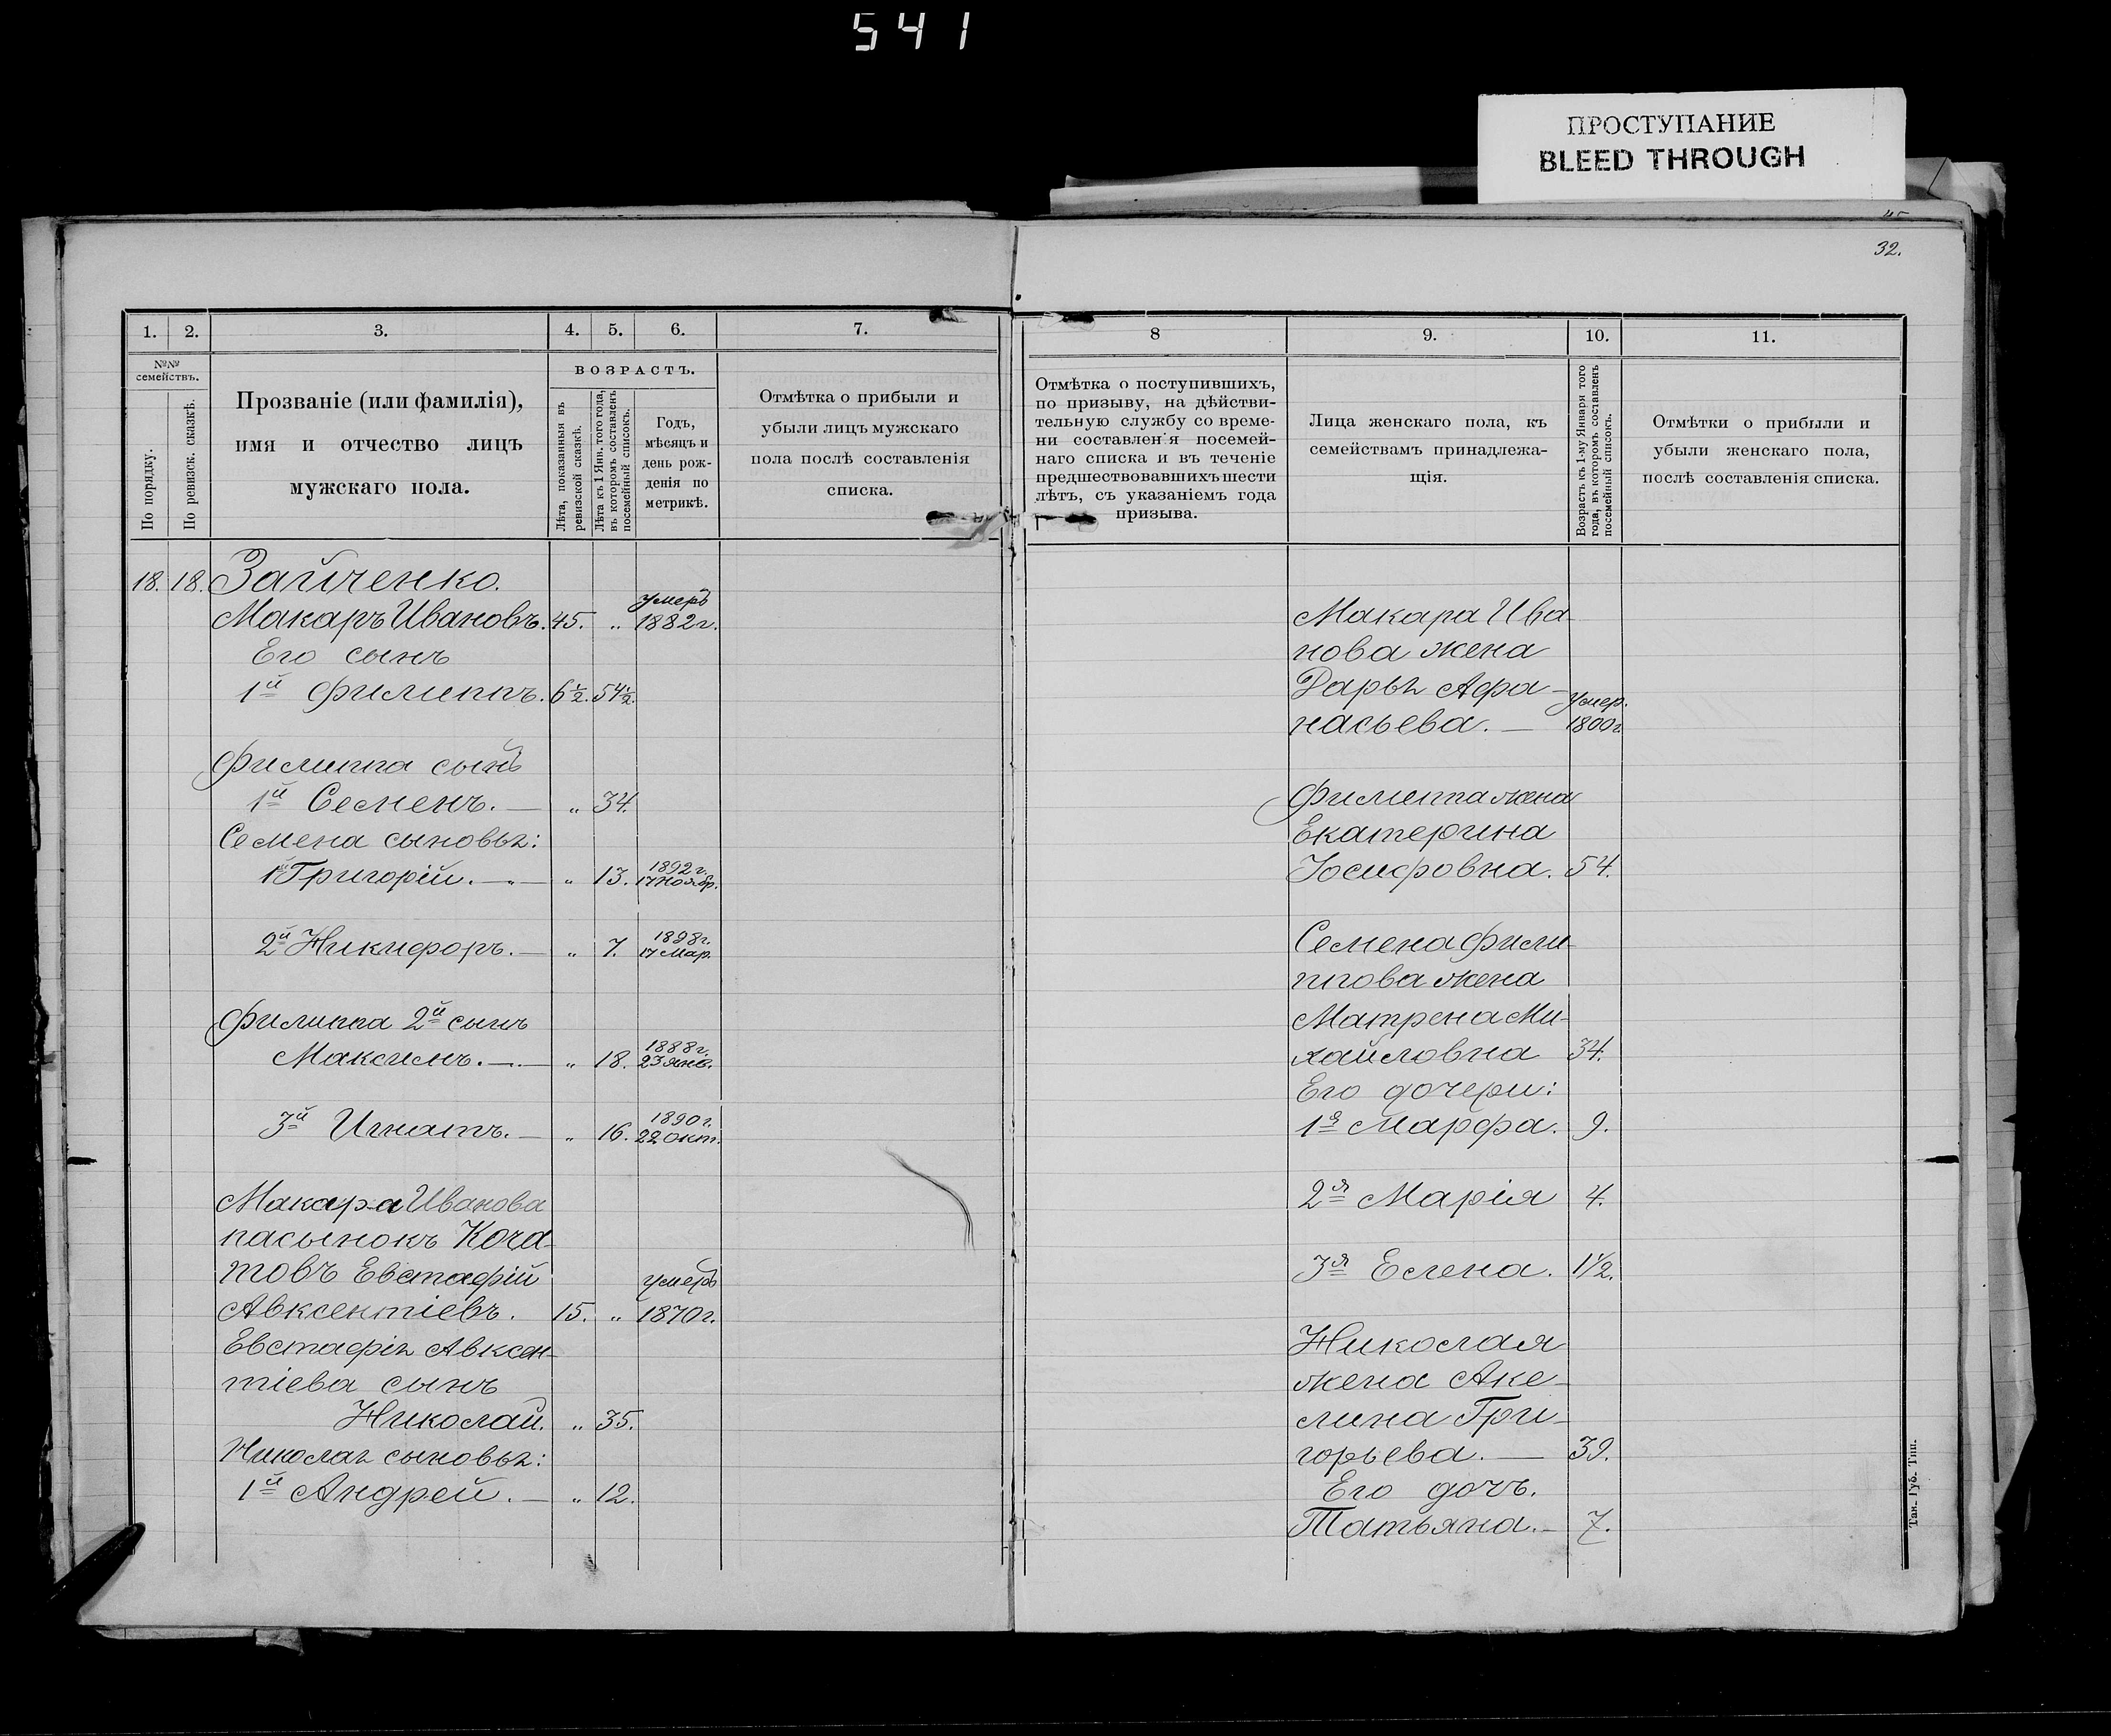 541
ПРОСТУПАНИЕ
BLEED THROUGH
32.
1. 2. 3. 4. 5. 6. 7.
№№ семействъ.
По порядку.
По ревизск. сказкѣ.
Прозваніе (или фамилія),
имя и отчество лицъ
мужскаго пола.
ВОЗРАСТЪ.
Лѣта, показанныя въ
ревизской сказкѣ.
Лѣта къ 1 Янв. того года,
въ которомъ составленъ
посемейный списокъ.
Годъ,
мѣсяцъ и
день рож-
денія по
метрикѣ.
Отмѣтка о прибыли и
убыли лицъ мужскаго
пола послѣ составленія
списка.
18. 18. Зайченко.
умеръ
Макаръ Ивановъ. 45. „ 1882г.
Его сынъ
1й Филиппъ. 6½. 54½.
Филиппа сынъ
1й Семенъ. — „ 34.
Семена сыновья:
1й Григорій. — „ 13. 1892г.
17 Ноябр.
2й Никифоръ. — „ 7. 1898г.
17 Мар.
Филиппа 2й сынъ
Максимъ. — „ 18. 1888г.
23 янв.
3й Игнатъ. — „ 16. 1890г.
22 окт.
Макара Иванова
пасынокъ Коча-
товъ Евстафій умеръ
Авксентіевъ. 15. „ 1870г.
Евстафія Авксен-
тіева сынъ
Николай. „ 35.
Николая сыновья:
1й Андрей. — „ 12.
8 9. 10. 11.
Отмѣтка о поступившихъ,
по призыву, на дѣйстви-
тельную службу со време-
ни составленія посемей-
наго списка и въ теченіе
предшествовавшихъ шести
лѣтъ, съ указаніемъ года
призыва.
Лица женскаго пола, къ
семействамъ принадлежа-
щія.
Возрастъ къ 1-му Января того
года, въ которомъ составленъ
посемейный списокъ.
Отмѣтки о прибыли и
убыли женскаго пола,
послѣ составленія списка.
Макара Ива-
нова жена
Дарья Афа-
умер.
насьева. — 1800г
Филиппа жена
Екатерина
Іосифовна. 54.
Семена Фили-
ппова жена
Матрена Ми-
хайловна 34.
Его дочери:
1я Марфа. 9.
2я Марія 4.
3я Елена. 1½.
Николая
жена Аке-
лина Гри-
горьева. — 39.
Его дочь.
Татьяна. — 7.
Тан. Губ. Тип.